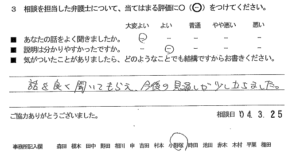 3 相談を担当した弁護士について、当てはまる評価に○(⊖)をつけてください。
大変よい よい 普通 やや悪い 悪い
■ あなたの話をよく聞きましたか。
■ 説明は分かりやすかったですか。
■ 気がついたことがありましたら、どのようなことでも結構ですからお書きください。
話を良く聞いてもらえ、今後の見通しが少し立ちました。
ご協力ありがとうございました。
相談日 04.3.25
事務所記入欄 森田 榎本 田中 野田 相川 串 吉田 村本 小野塚 時田 池田 赤木 木村 平葉 種田